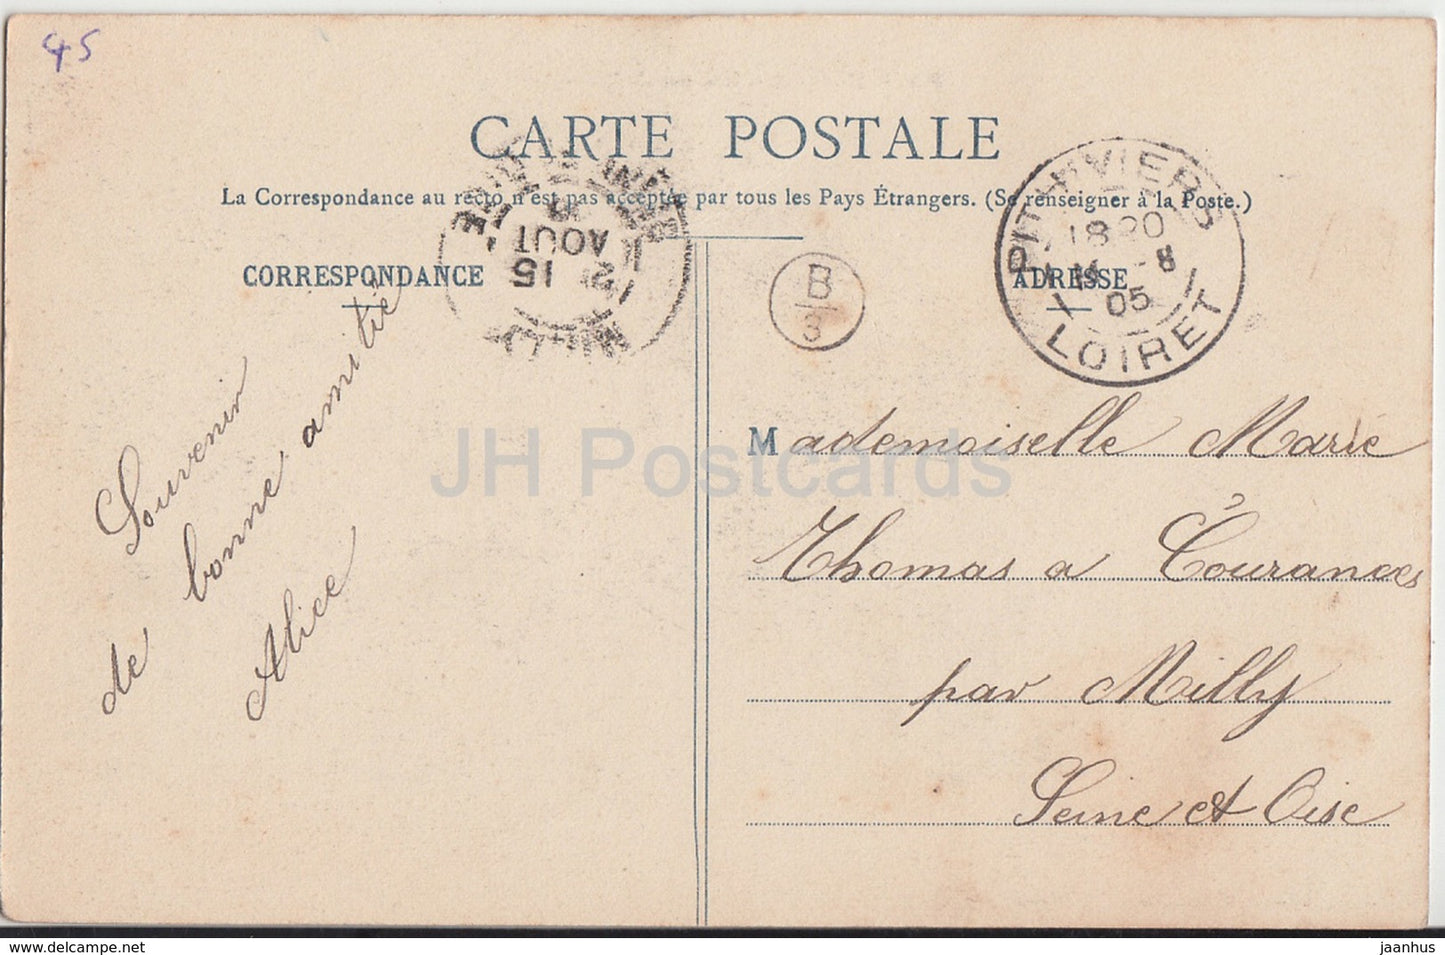 45
CARTE POSTALE
La Correspondance au recto n'est pas acceptée par tous les Pays Étrangers. (Se renseigner à la Poste.)
CORRESPONDANCE
ADRESSE
15
AOUT
B
3
PITHIVIERS
18 20
-8
05
LOIRET
Souvenir
de bonne amitié
Alice
Mademoiselle Marie
Thomas a Courances
par Milly
Seine et Oise
JH Postcards
delcampe.net
jaanhus